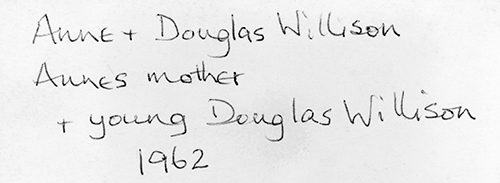 Anne + Douglas Willison
Annes mother
+ young Douglas Willison
1962